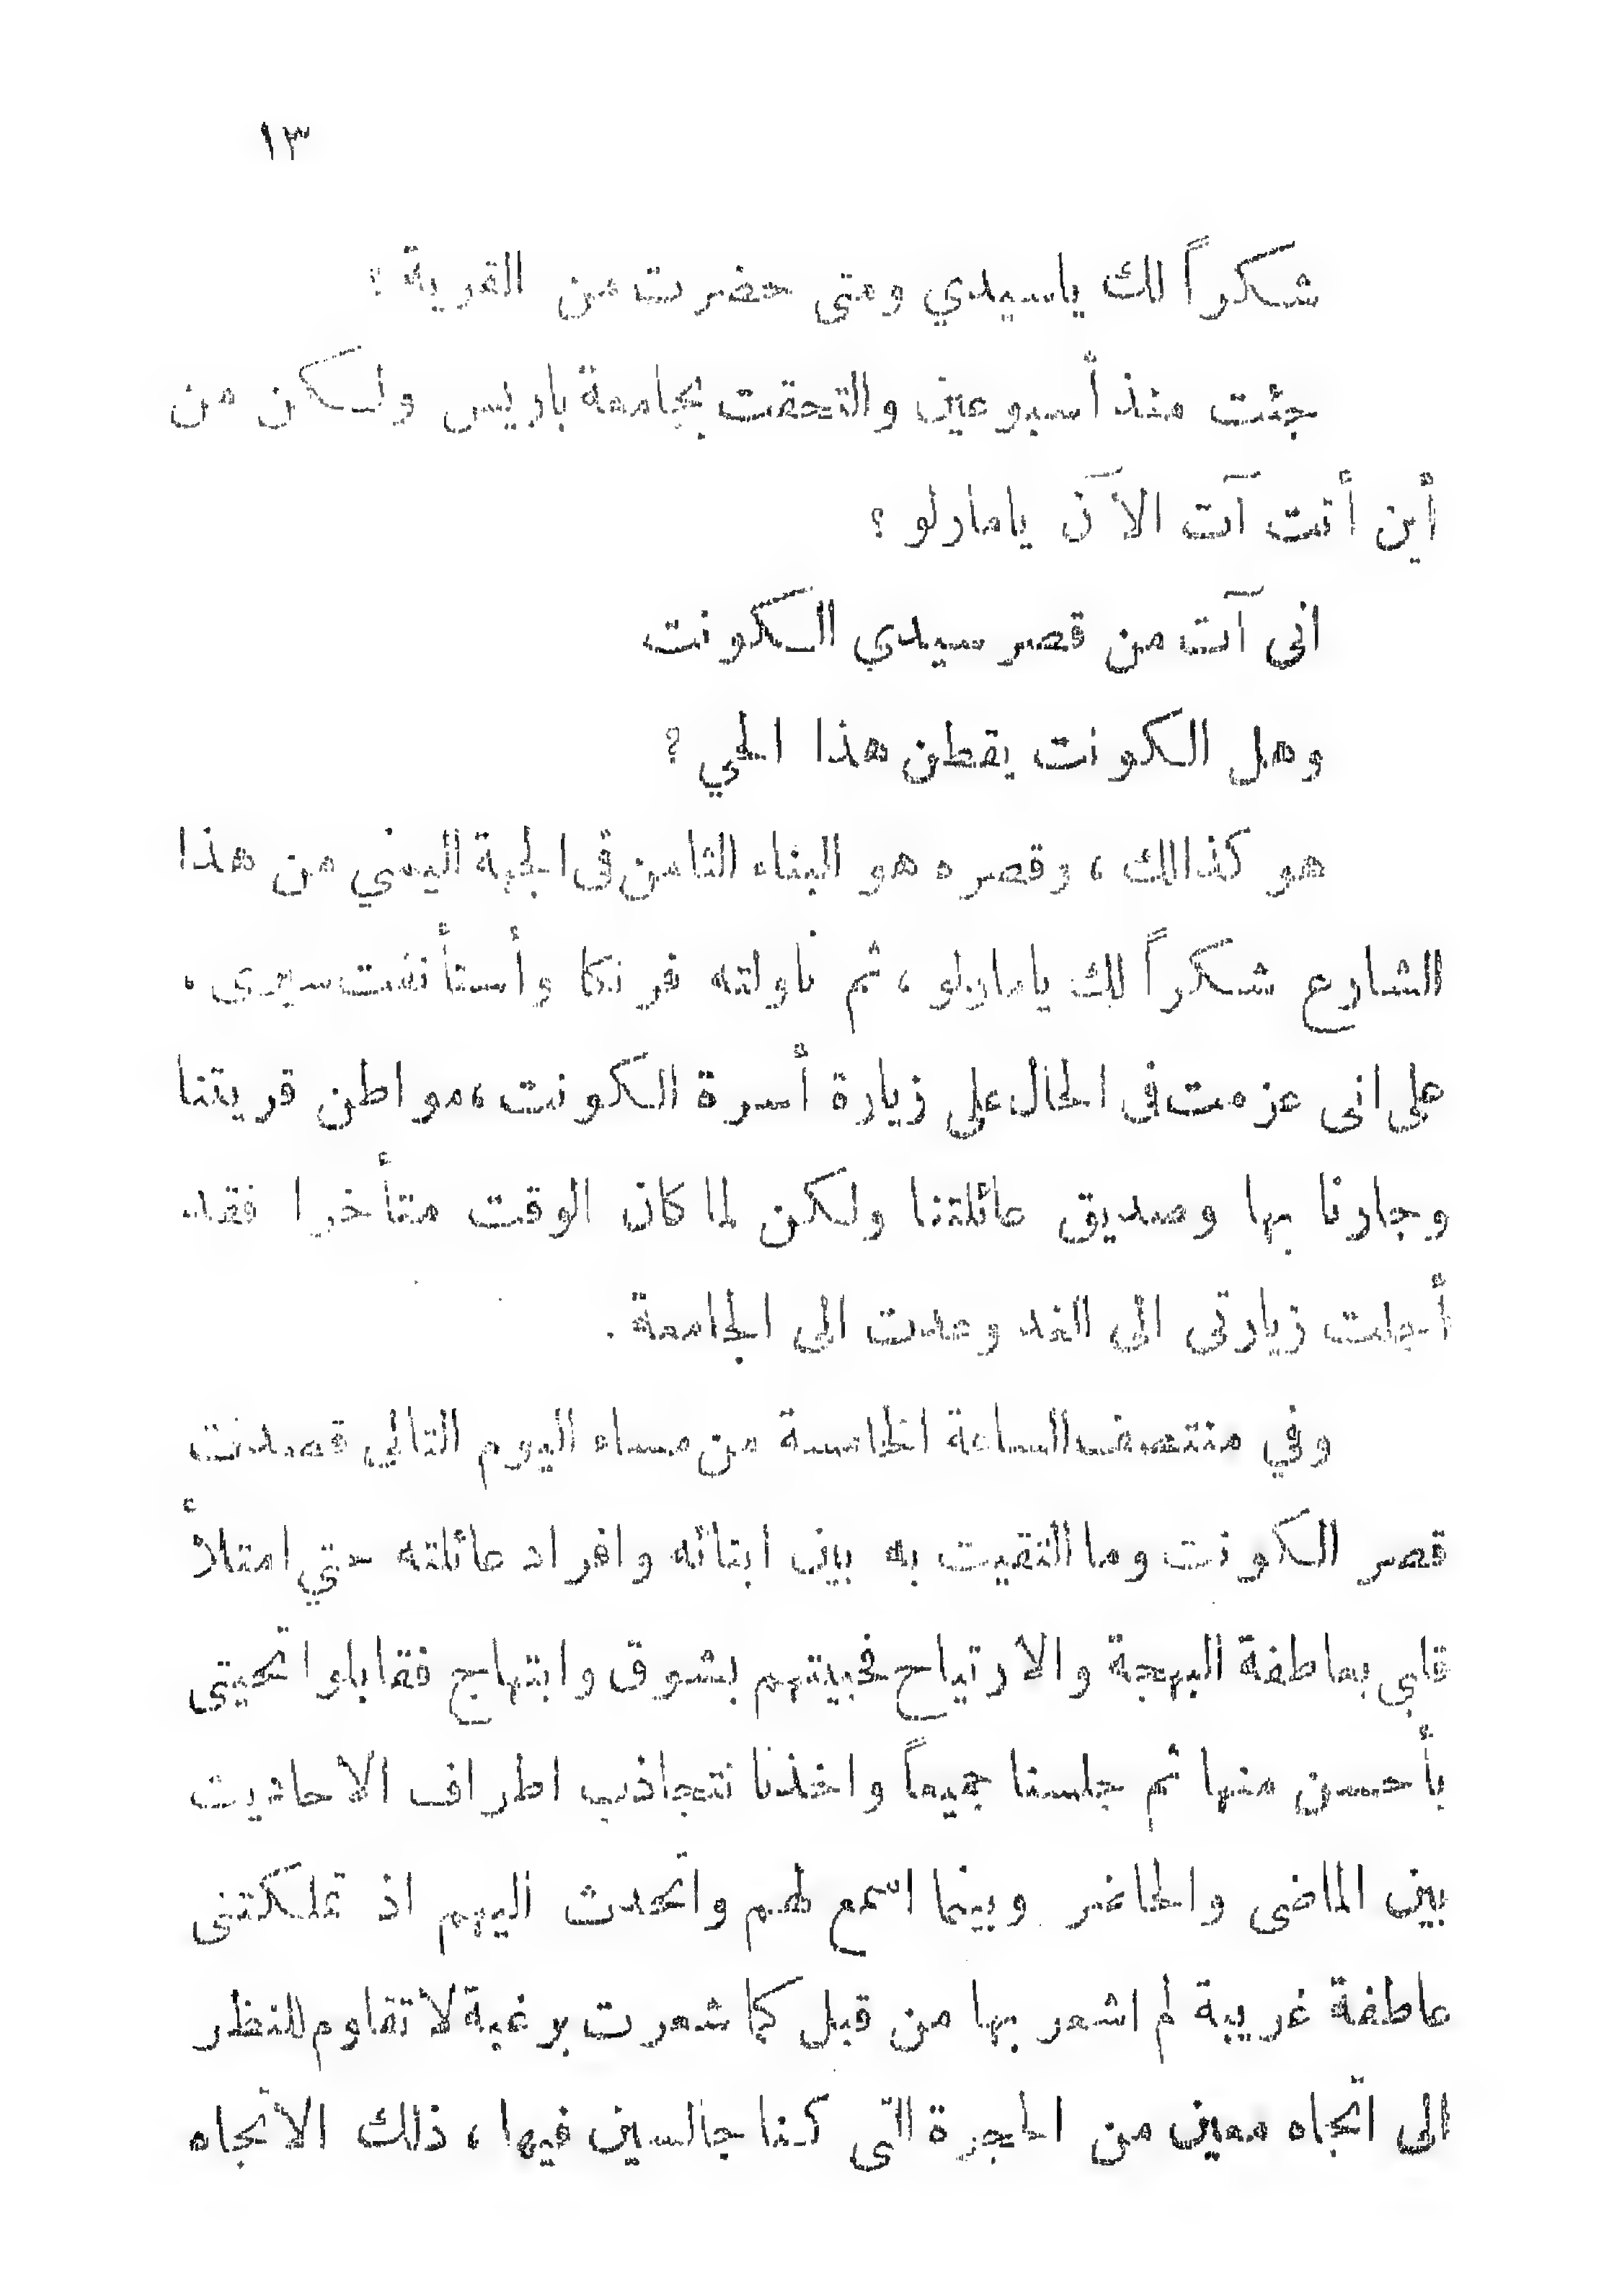 ١٣
شكراً لك ياسيدي ومتى حضرت من القرية ؟
جئت منذ أسبوعين والتحقت بجامعة باريس ولكن من
أين أنت آت الآن يامارلو ؟
انى آت من قصر سيدي الكونت
وهل الكونت يقطن هذا الحي ؟
هو كذالك ، وقصره هو البناء الثامن فى الجهة اليمني من هذا
الشارع شكراً لك يامارلو ، ثم ناولته فرنكا وأستأنفت سيرى ،
على انى عزمت فى الحال على زيارة أسرة الكونت ، مواطن قريتنا
وجارنا بها وصديق عائلتنا ولكن لما كان الوقت متأخرا فقد
أجلت زيارتى الى الغد وعدت الى الجامعة .
وفي منتصف الساعة الخامسة من مساء اليوم التالي قصدت
قصر الكونت وما التقيت به بين ابنائه وافراد عائلته حتي امتلأ
قلبي بعاطفة البهجة والارتياح فحييتهم بشوق وابتهاج فقابلوا تحيتى
بأحسن منها ثم جلسنا جميعاً واخذنا نتجاذب اطراف الاحاديث
بين الماضى والحاضر وبينما اسمع لهم واتحدث اليهم اذ تملكتنى
عاطفة غريبة لم اشعر بها من قبل كما شعرت برغبة لا تقاوم للنظر
الى اتجاه معين من الحجرة التى كنا جالسين فيها ، ذلك الاتجاه